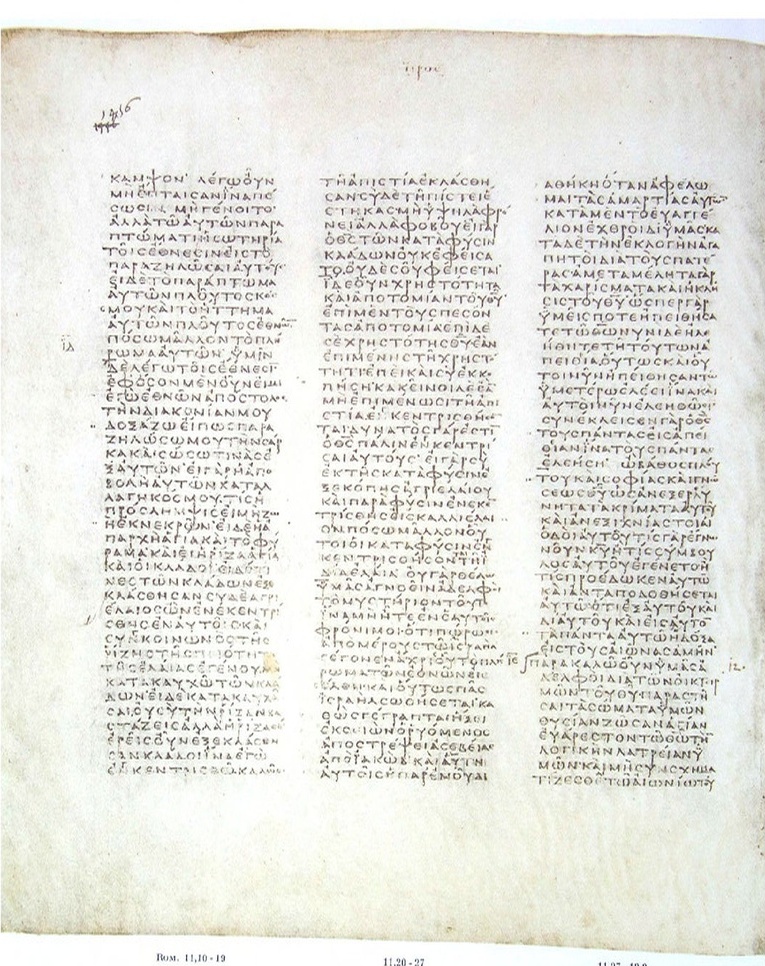 ϊροϲ
1456
ΚΑΜΨΟΝ ΛΕΓΩΟΥΝ
ΜΗΕΠΤΑΙϹΑΝΙΝΑΠΕ
ϹΩϹΙΝ ΜΗΓΕΝΟΙΤΟ
ΑΛΛΑΤΩΑΥΤΩΝΠΑΡΑ
ΠΤΩΜΑΤΙΗϹΩΤΗΡΙΑ
ΤΟΙϹΕΘΝΕϹΙΝΕΙϹΤΟ
ΠΑΡΑΖΗΛΩϹΑΙΑΥΤΟΥϹ
ΕΙΔΕΤΟΠΑΡΑΠΤΩΜΑ
ΑΥΤΩΝΠΛΟΥΤΟϹΚΟ
ϹΜΟΥΚΑΙΤΟΗΤΤΗΜΑ
ΑΥΤΩΝΠΛΟΥΤΟϹΕΘΝΩ
ΠΟϹΩΜΑΛΛΟΝΤΟΠΛΗ
ΡΩΜΑΑΥΤΩΝ ΥΜΙΝ
ΔΕΛΕΓΩΤΟΙϹΕΘΝΕϹΙ
ΕΦΟϹΟΝΜΕΝΟΥΝΕΙΜΙ
ΕΓΩΕΘΝΩΝΑΠΟϹΤΟΛΟϹ
ΤΗΝΔΙΑΚΟΝΙΑΝΜΟΥ
ΔΟΞΑΖΩΕΙΠΩϹΠΑΡΑ
ΖΗΛΩϹΩΜΟΥΤΗΝϹΑΡ
ΚΑΚΑΙϹΩϹΩΤΙΝΑϹΕ
ΞΑΥΤΩΝΕΙΓΑΡΗΑΠΟ
ΒΟΛΗΑΥΤΩΝΚΑΤΑΛ
ΛΑΓΗΚΟϹΜΟΥΤΙϹΗ
ΠΡΟϹΛΗΜΨΙϹΕΙΜΗΖΩ
ΗΕΚΝΕΚΡΩΝΕΙΔΕΗΑ
ΠΑΡΧΗΑΓΙΑΚΑΙΤΟΦΥ
ΡΑΜΑΚΑΙΕΙΗΡΙΖΑΑΓΙΑ
ΚΑΙΟΙΚΛΑΔΟΙ ΕΙΔΕΤΙ
ΝΕϹΤΩΝΚΛΑΔΩΝΕΞΕ
ΚΛΑϹΘΗϹΑΝϹΥΔΕΑΓΡΙ
ΕΛΑΙΟϹΩΝΕΝΕΚΕΝΤΡΙ
ϹΘΗϹΕΝΑΥΤΟΙϹΚΑΙ
ϹΥΝΚΟΙΝΩΝΟϹΤΗϹ
ΡΙΖΗϹΤΗϹΠΙΟΤΗΤΟϹ
ΤΗϹΕΛΑΙΑϹΕΓΕΝΟΥΜΗ
ΚΑΤΑΚΑΥΧΩΤΩΝΚΛΑ
ΔΩΝΕΙΔΕΚΑΤΑΚΑΥΧΑ
ϹΑΙΟΥϹΥΤΗΝΡΙΖΑΝΒΑ
ϹΤΑΖΕΙϹΑΛΛΑΗΡΙΖΑϹΕ
ΕΡΕΙϹΟΥΝΕΞΕΚΛΑϹΘΗ
ϹΑΝΚΛΑΔΟΙΙΝΑΕΓΩ
ΕΝΚΕΝΤΡΙϹΘΩΚΑΛΩϹ
ΤΗΑΠΙϹΤΙΑΕΚΛΑϹΘΗ
ϹΑΝϹΥΔΕΤΗΠΙϹΤΕΙΕ
ϹΤΗΚΑϹΜΗΥΨΗΛΑΦΡΟ
ΝΕΙΑΛΛΑΦΟΒΟΥΕΙΓΑΡ
ΟΘϹΤΩΝΚΑΤΑΦΥϹΙΝ
ΚΛΑΔΩΝΟΥΚΕΦΕΙϹΑ
ΤΟΟΥΔΕϹΟΥΦΕΙϹΕΤΑΙ
ΙΔΕΟΥΝΧΡΗϹΤΟΤΗΤΑ
ΚΑΙΑΠΟΤΟΜΙΑΝΤΟΥΘΥ
ΕΠΙΜΕΝΤΟΥϹΠΕϹΟΝ
ΤΑϹΑΠΟΤΟΜΙΑΕΠΙΔΕ
ϹΕΧΡΗϹΤΟΤΗϹΘΥΕΑΝ
ΕΠΙΜΕΝΗϹΤΗΧΡΗϹΤΟ
ΤΗΤΙΕΠΕΙΚΑΙϹΥΕΚΚΟ
ΠΗϹΗΚΑΚΕΙΝΟΙΔΕΕΑ
ΜΗΕΠΙΜΕΝΩϹΙΤΗΑΠΙ
ϹΤΙΑΕΝΚΕΝΤΡΙϹΘΗϹΟ
ΤΑΙΔΥΝΑΤΟϹΓΑΡΕϹΤΙ
ΟΘϹΠΑΛΙΝΕΝΚΕΝΤΡΙ
ϹΑΙΑΥΤΟΥϹ ΕΙΓΑΡϹΥ
ΕΚΤΗϹΚΑΤΑΦΥϹΙΝΕ
ΞΕΚΟΠΗϹΑΓΡΙΕΛΑΙΟΥ
ΚΑΙΠΑΡΑΦΥϹΙΝΕΝΕΚΕ
ΤΡΙϹΘΗϹΕΙϹΚΑΛΛΙΕΛΑΙ
ΟΝΠΟϹΩΜΑΛΛΟΝΟΥ
ΤΟΙΟΙΚΑΤΑΦΥϹΙΝΕΝ
ΚΕΝΤΡΙϹΘΗϹΟΝΤΑΙΤΗ
ΙΔΙΑΕΛΑΙΑ ΟΥΓΑΡΘΕΛΩ
ΥΜΑϹΑΓΝΟΕΙΝΑΔΕΛΦΟΙ
ΤΟΜΥϹΤΗΡΙΟΝΤΟΥΤΟ
ΙΝΑΜΗΗΤΕΕΝΕΑΥΤΟΙϹ
ΦΡΟΝΙΜΟΙΟΤΙΠΩΡΩϹΙϹ
ΑΠΟΜΕΡΟΥϹΤΩΙϹΡΑΗΛ
ΓΕΓΟΝΕΝΑΧΡΙΟΥΤΟΠΛΗ
ΡΩΜΑΤΩΝΕΘΝΩΝΕΙϹ
ΕΛΘΗΚΑΙΟΥΤΩϹΠΑϹ
ΙϹΡΑΗΛϹΩΘΗϹΕΤΑΙΚΑ
ΘΩϹΓΕΓΡΑΠΤΑΙΗΞΕΙ
ΕΚϹΕΙΩΝΟΡΥΟΜΕΝΟϹ
ΑΠΟϹΤΡΕΨΕΙΑϹΕΒΕΙΑϹ
ΑΠΟΙΑΚΩΒΚΑΙΑΥΤΗ
ΑΥΤΟΙϹΗΠΑΡΕΜΟΥΔΙ
ΑΘΗΚΗΟΤΑΝΑΦΕΛΩ
ΜΑΙΤΑϹΑΜΑΡΤΙΑϹΑΥΤΩ
ΚΑΤΑΜΕΝΤΟΕΥΑΓΓΕ
ΛΙΟΝΕΧΘΡΟΙΔΙΥΜΑϹΚΑ
ΤΑΔΕΤΗΝΕΚΛΟΓΗΝΑΓΑ
ΠΗΤΟΙΔΙΑΤΟΥϹΠΑΤΕ
ΡΑϹΑΜΕΤΑΜΕΛΗΤΑΓΑΡ
ΤΑΧΑΡΙϹΜΑΤΑΚΑΙΗΚΛΗ
ϹΙϹΤΟΥΘΥΩϹΠΕΡΓΑΡ
ΥΜΕΙϹΠΟΤΕΗΠΕΙΘΗϹΑ
ΤΕΤΩΘΩΝΥΝΙΔΕΗΛΕ
ΗΘΗΤΕΤΗΤΟΥΤΩΝΑ
ΠΕΙΘΙΑΟΥΤΩϹΚΑΙΟΥ
ΤΟΙΝΥΝΗΠΕΙΘΗϹΑΝΤΩ
ΥΜΕΤΕΡΩΕΛΕΕΙΙΝΑΚΑΙ
ΑΥΤΟΙΝΥΝΕΛΕΗΘΩϹΙ
ϹΥΝΕΚΛΕΙϹΕΝΓΑΡΟΘϹ
ΤΟΥϹΠΑΝΤΑϹΕΙϹΑΠΕΙ
ΘΙΑΝΙΝΑΤΟΥϹΠΑΝΤΑϹ
ΕΛΕΗϹΗ ΩΒΑΘΟϹΠΛΟΥ
ΤΟΥΚΑΙϹΟΦΙΑϹΚΑΙΓΝΩ
ϹΕΩϹΘΥΩϹΑΝΕΞΕΡΑΥ
ΝΗΤΑΤΑΚΡΙΜΑΤΑΑΥΤΟΥ
ΚΑΙΑΝΕΞΙΧΝΙΑϹΤΟΙΑΙ
ΟΔΟΙΑΥΤΟΥΤΙϹΓΑΡΕΓΝΩ
ΝΟΥΝΚΥΗΤΙϹϹΥΜΒΟΥ
ΛΟϹΑΥΤΟΥΕΓΕΝΕΤΟΗ
ΤΙϹΠΡΟΕΔΩΚΕΝΑΥΤΩ
ΚΑΙΑΝΤΑΠΟΔΟΘΗϹΕΤΑΙ
ΑΥΤΩΟΤΙΕΞΑΥΤΟΥΚΑΙ
ΔΙΑΥΤΟΥΚΑΙΕΙϹΑΥΤΟ
ΤΑΠΑΝΤΑΑΥΤΩΗΔΟΞΑ
ΕΙϹΤΟΥϹΑΙΩΝΑϹΑΜΗΝ
ΠΑΡΑΚΑΛΩΟΥΝΥΜΑϹΑ
ΔΕΛΦΟΙΔΙΑΤΩΝΟΙΚΤΙΡ
ΜΩΝΤΟΥΘΥΠΑΡΑϹΤΗ
ϹΑΙΤΑϹΩΜΑΤΑΥΜΩΝ
ΘΥϹΙΑΝΖΩϹΑΝΑΓΙΑΝ
ΕΥΑΡΕϹΤΟΝΤΩΘΩΤΗ
ΛΟΓΙΚΗΝΛΑΤΡΕΙΑΝΥ
ΜΩΝΚΑΙΜΗϹΥΝϹΧΗΜΑ
ΤΙΖΕϹΘΕΤΩΑΙΩΝΙΤΟΥΤΩ
ΙΔ
ΙΕ
12.
Rom. 11,10-19
11,20-27